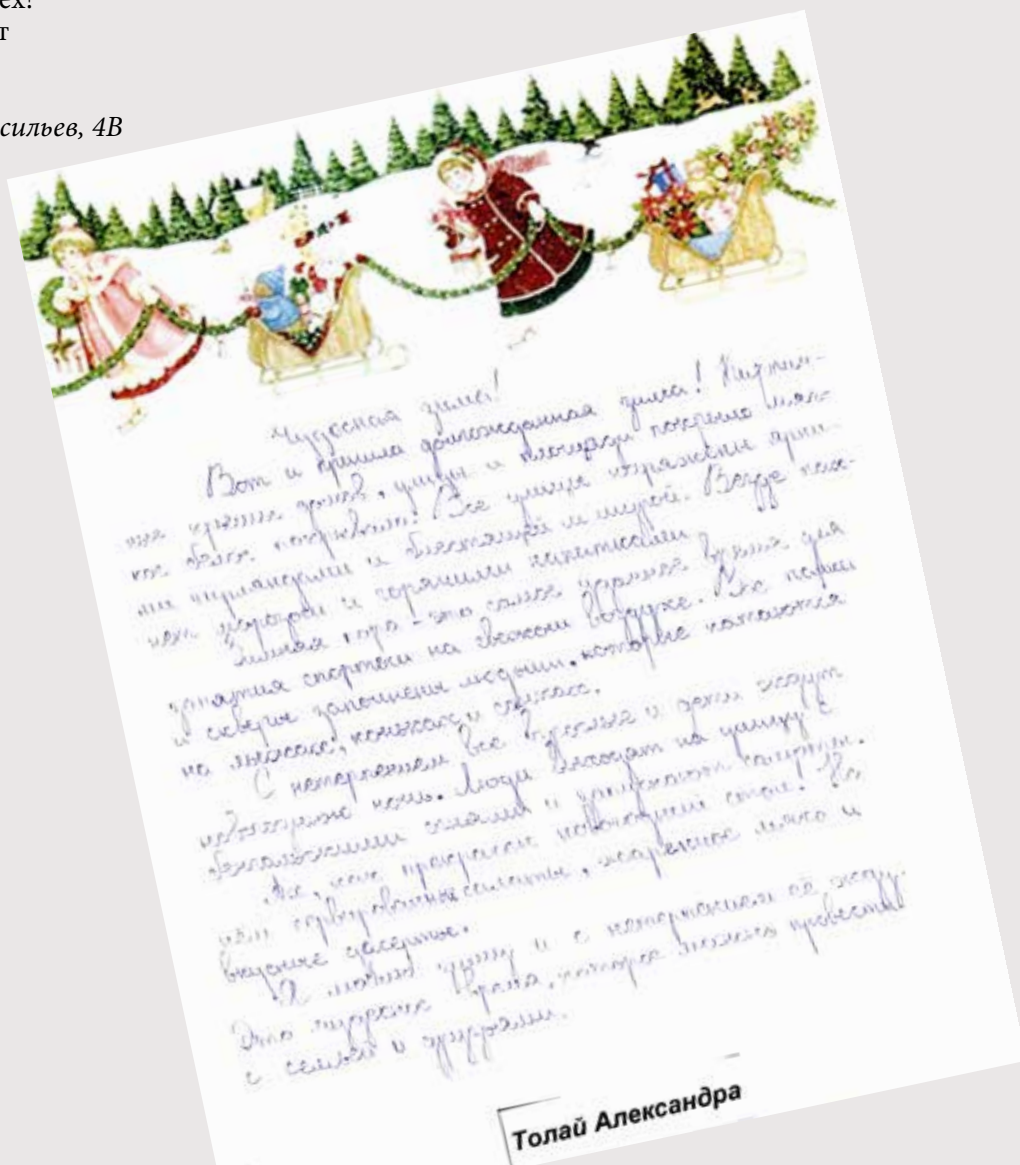 ех!
т
сильев, 4В
Чудесная зима!
Вот и пришла долгожданная зима! Кирпич-
ные крыши домов, улицы и площади покрыло мяг-
кое белое покрывало! Все улицы наряжены ярки-
ми гирляндами и блестящей мишурой. Везде пах-
нет и горячими напитками
Зимняя пора - это самое удачное время для
занятия спортом на свежем воздухе. Все парки
и скверы заполнены людьми, которые катаются
на лыжах, коньках и санках.
С нетерпением все взрослые и дети ждут
новогоднюю ночь. Люди выходят на улицу с
бенгальскими огнями и запускают салюты.
Ах, как прекрасен новогодний стол! На
нём сервированы салаты, жареное мясо и
вкусные десерты.
Я люблю зиму и с нетерпением её жду.
Это чудесное время, которое можно провести
с семьёй и друзьями.
Толай Александра